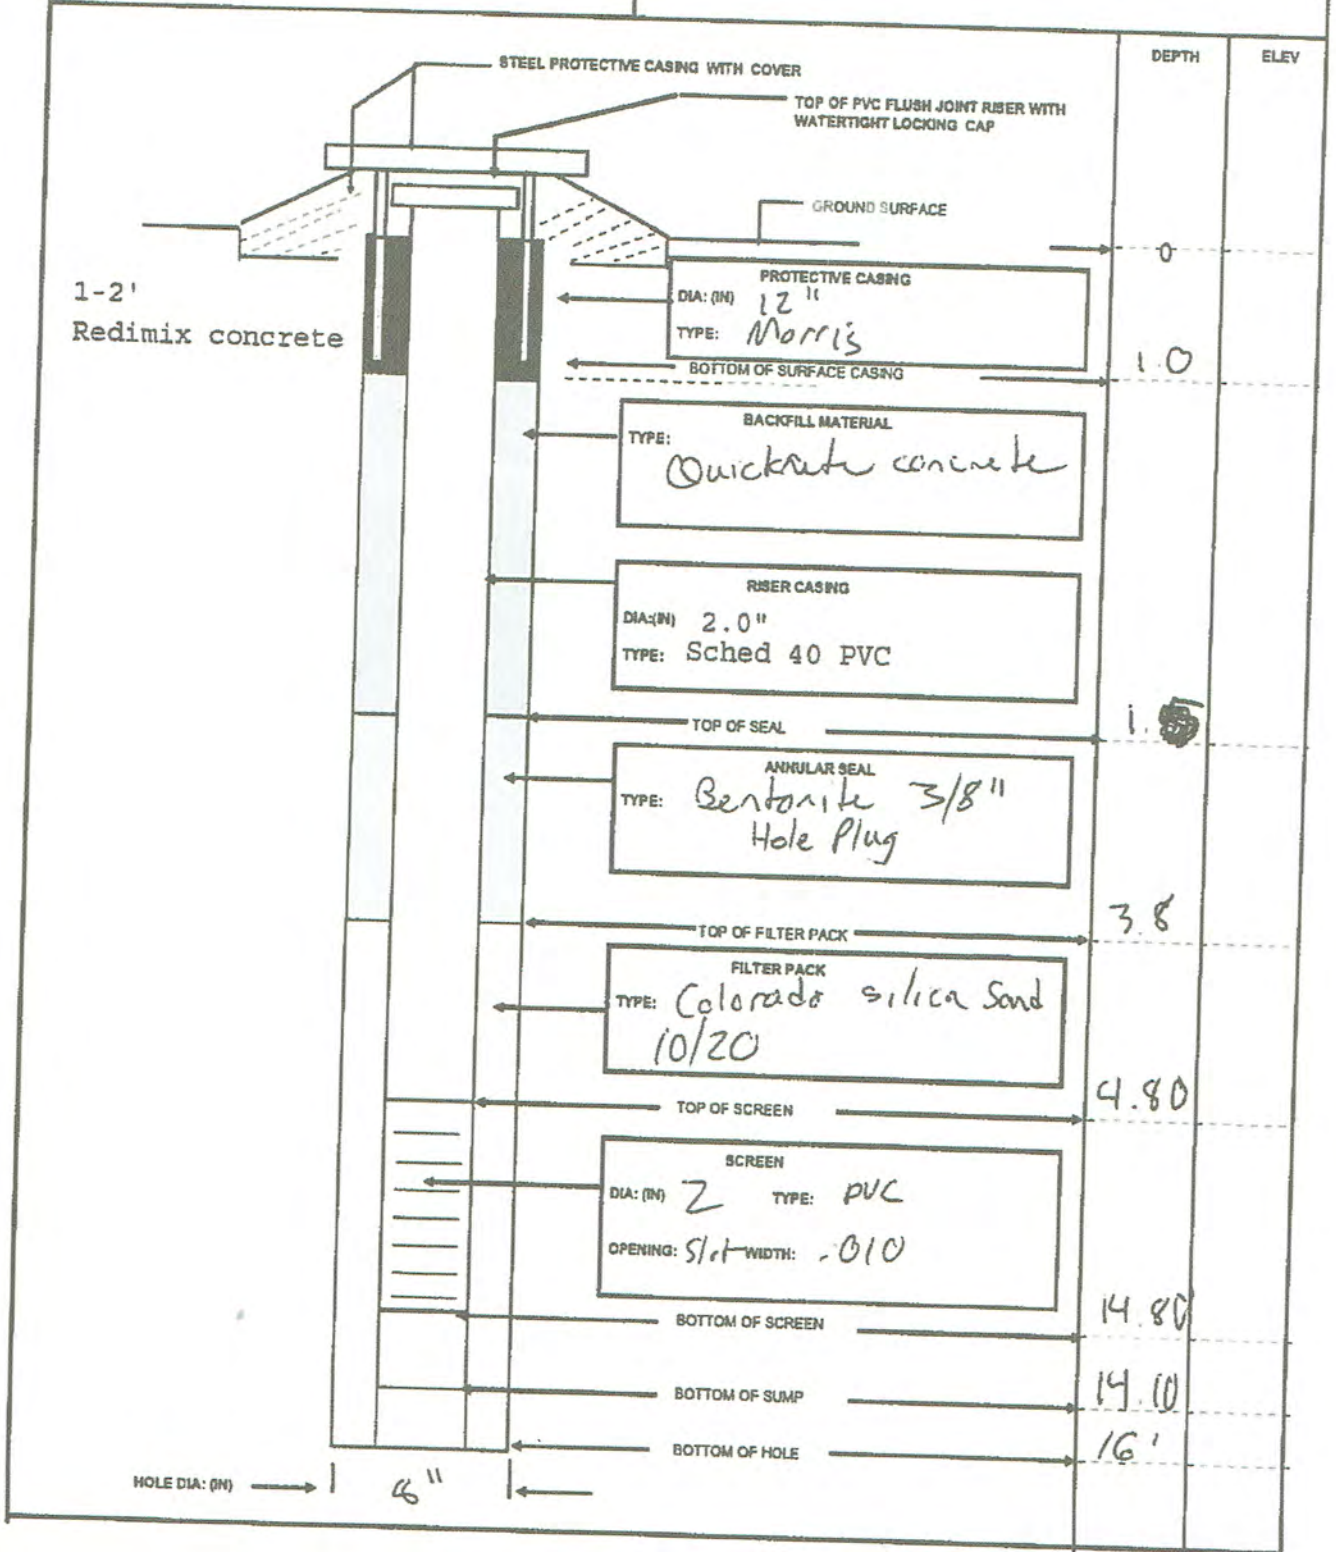 DEPTH ELEV
STEEL PROTECTIVE CASING WITH COVER
TOP OF PVC FLUSH JOINT RISER WITH
WATERTIGHT LOCKING CAP
GROUND SURFACE
0
1-2'
Redimix concrete
PROTECTIVE CASING
DIA: (IN) 12"
TYPE: Morris
BOTTOM OF SURFACE CASING 1.0
BACKFILL MATERIAL
TYPE:
Quickrete concrete
RISER CASING
DIA:(IN) 2.0"
TYPE: Sched 40 PVC
TOP OF SEAL 1.
ANNULAR SEAL
TYPE: Bentonite 3/8"
Hole Plug
TOP OF FILTER PACK 3.8
FILTER PACK
TYPE: Colorado silica Sand
10/20
TOP OF SCREEN 4.80
SCREEN
DIA: (IN) 2 TYPE: PVC
OPENING: Slot WIDTH: .010
BOTTOM OF SCREEN 14.80
BOTTOM OF SUMP 14.10
BOTTOM OF HOLE 16'
HOLE DIA: (IN) 8"